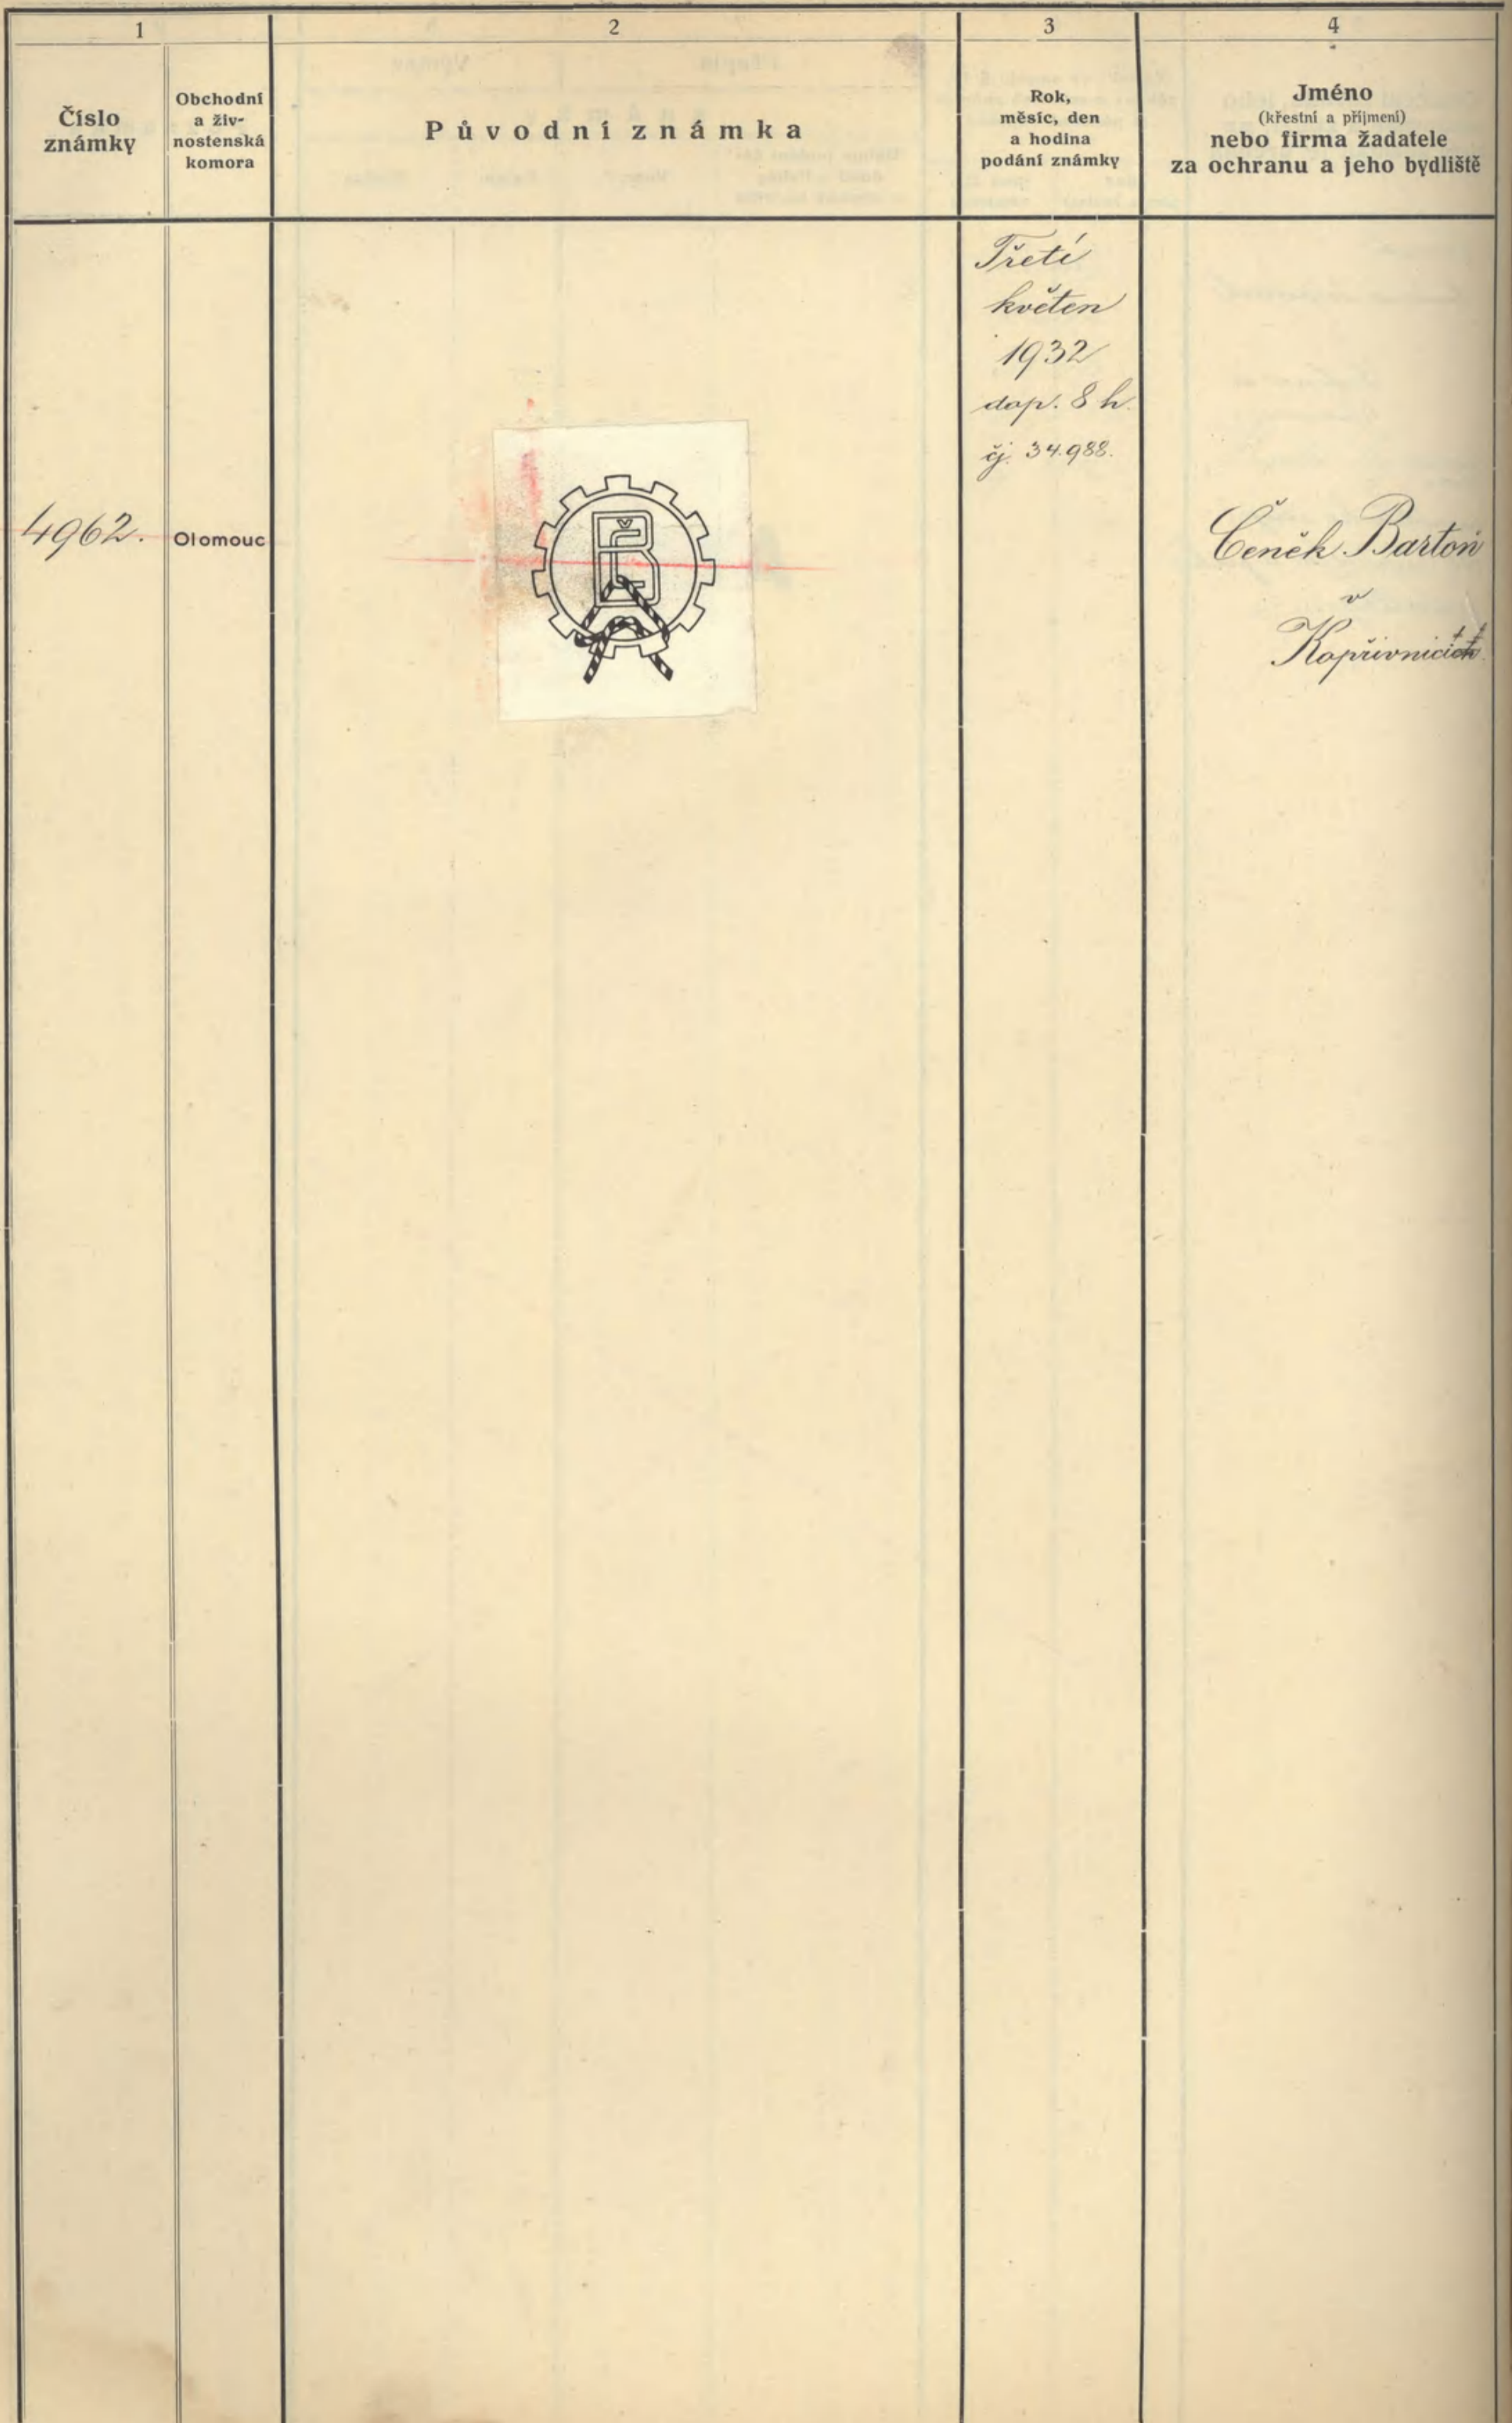 1
2
3
4
Číslo
známky
Obchodní
a živ-
nostenská
komora
Původní známka
Rok,
měsíc, den
a hodina
podání známky
Jméno
(křestní a příjmení)
nebo firma žadatele
za ochranu a jeho bydliště
Třetí
květen
1932
dop. 8 h.
čj. 34.988.
4962.
Olomouc
ČB
Čeněk Bartoň
v